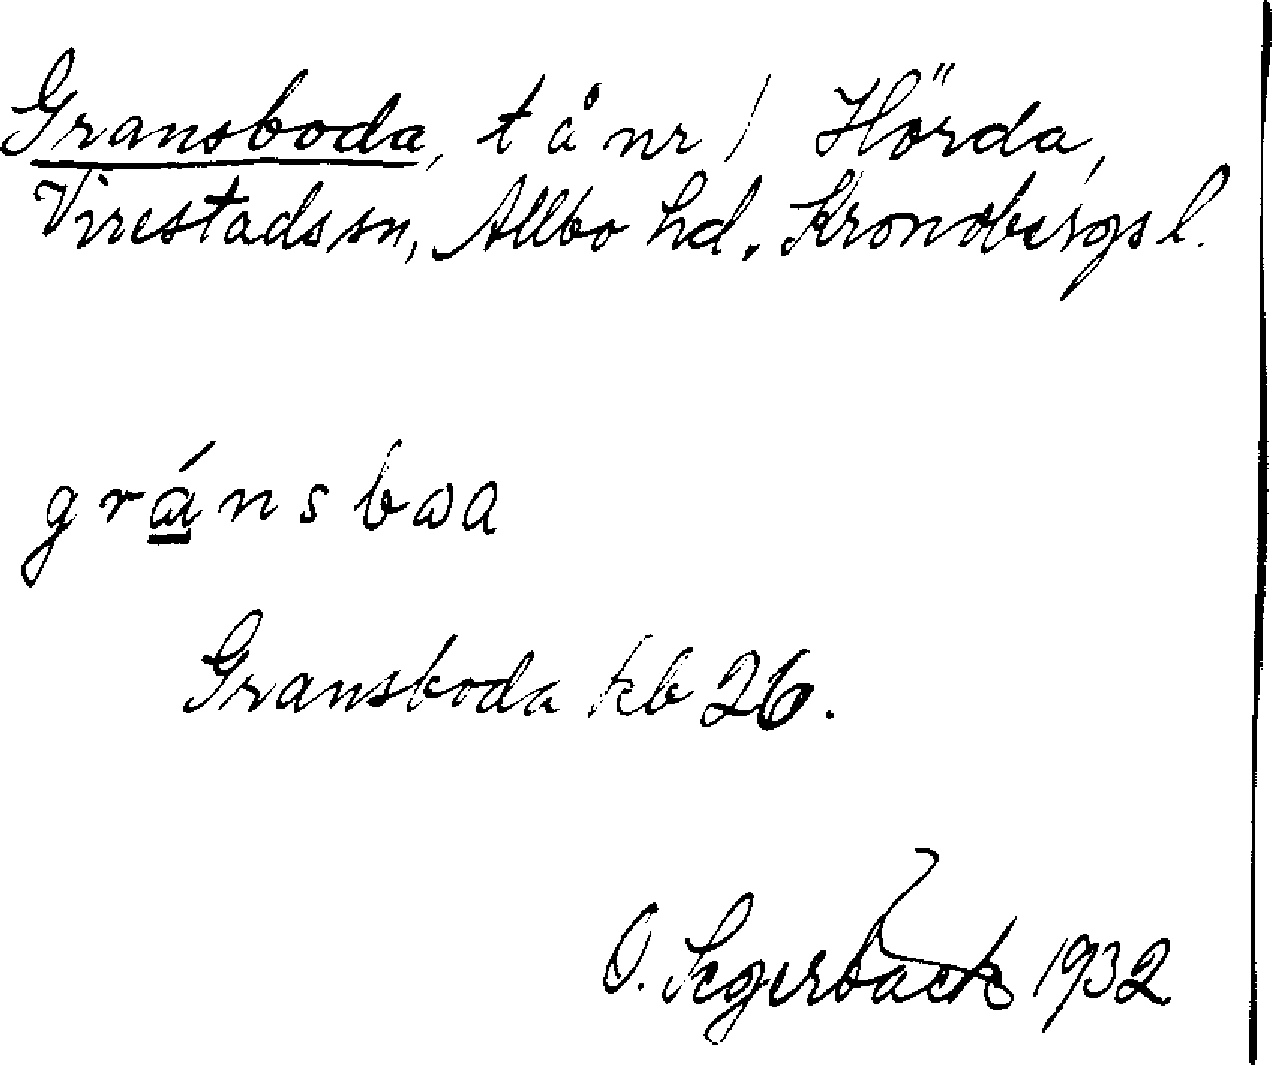 Gransboda, t å nr 1 Hörda,
Virestads sn, Allbo hd. Kronobergs l.
gránsbωa
Gransboda kb 26.
O. Segerbäck 1932